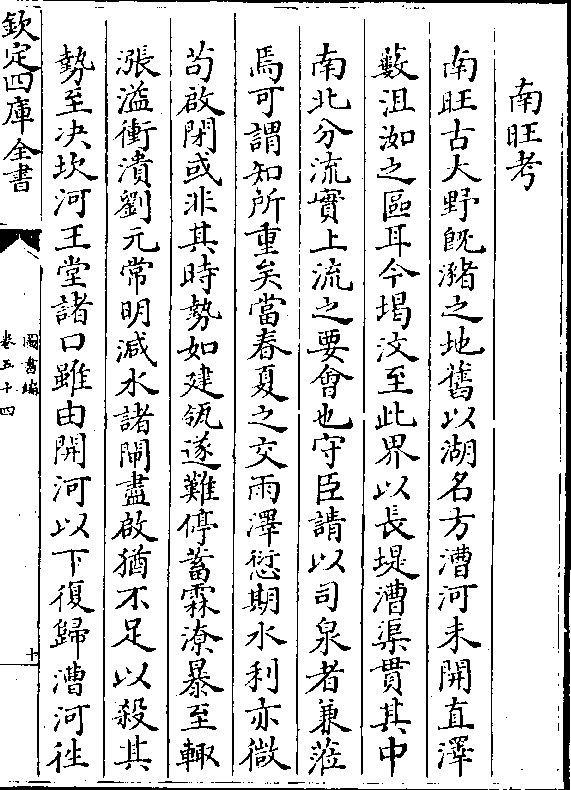 南旺考
南旺古大野既瀦之地舊以湖名方漕河未開直澤
藪沮洳之區耳今堨汶至此界以長堤漕渠貫其中
南北分流實上流之要會也守臣請以司泉者兼蒞
焉可謂知所重矣當春夏之交雨澤愆期水利亦微
苟啟閉或非其時勢如建瓴遂難停蓄霖潦暴至輙
漲溢衝潰劉元常明減水諸閘盡啟猶不足以殺其
勢至决坎河王堂諸口雖由開河以下復歸漕河徃
欽定四庫全書
圖書編
卷五十四
十